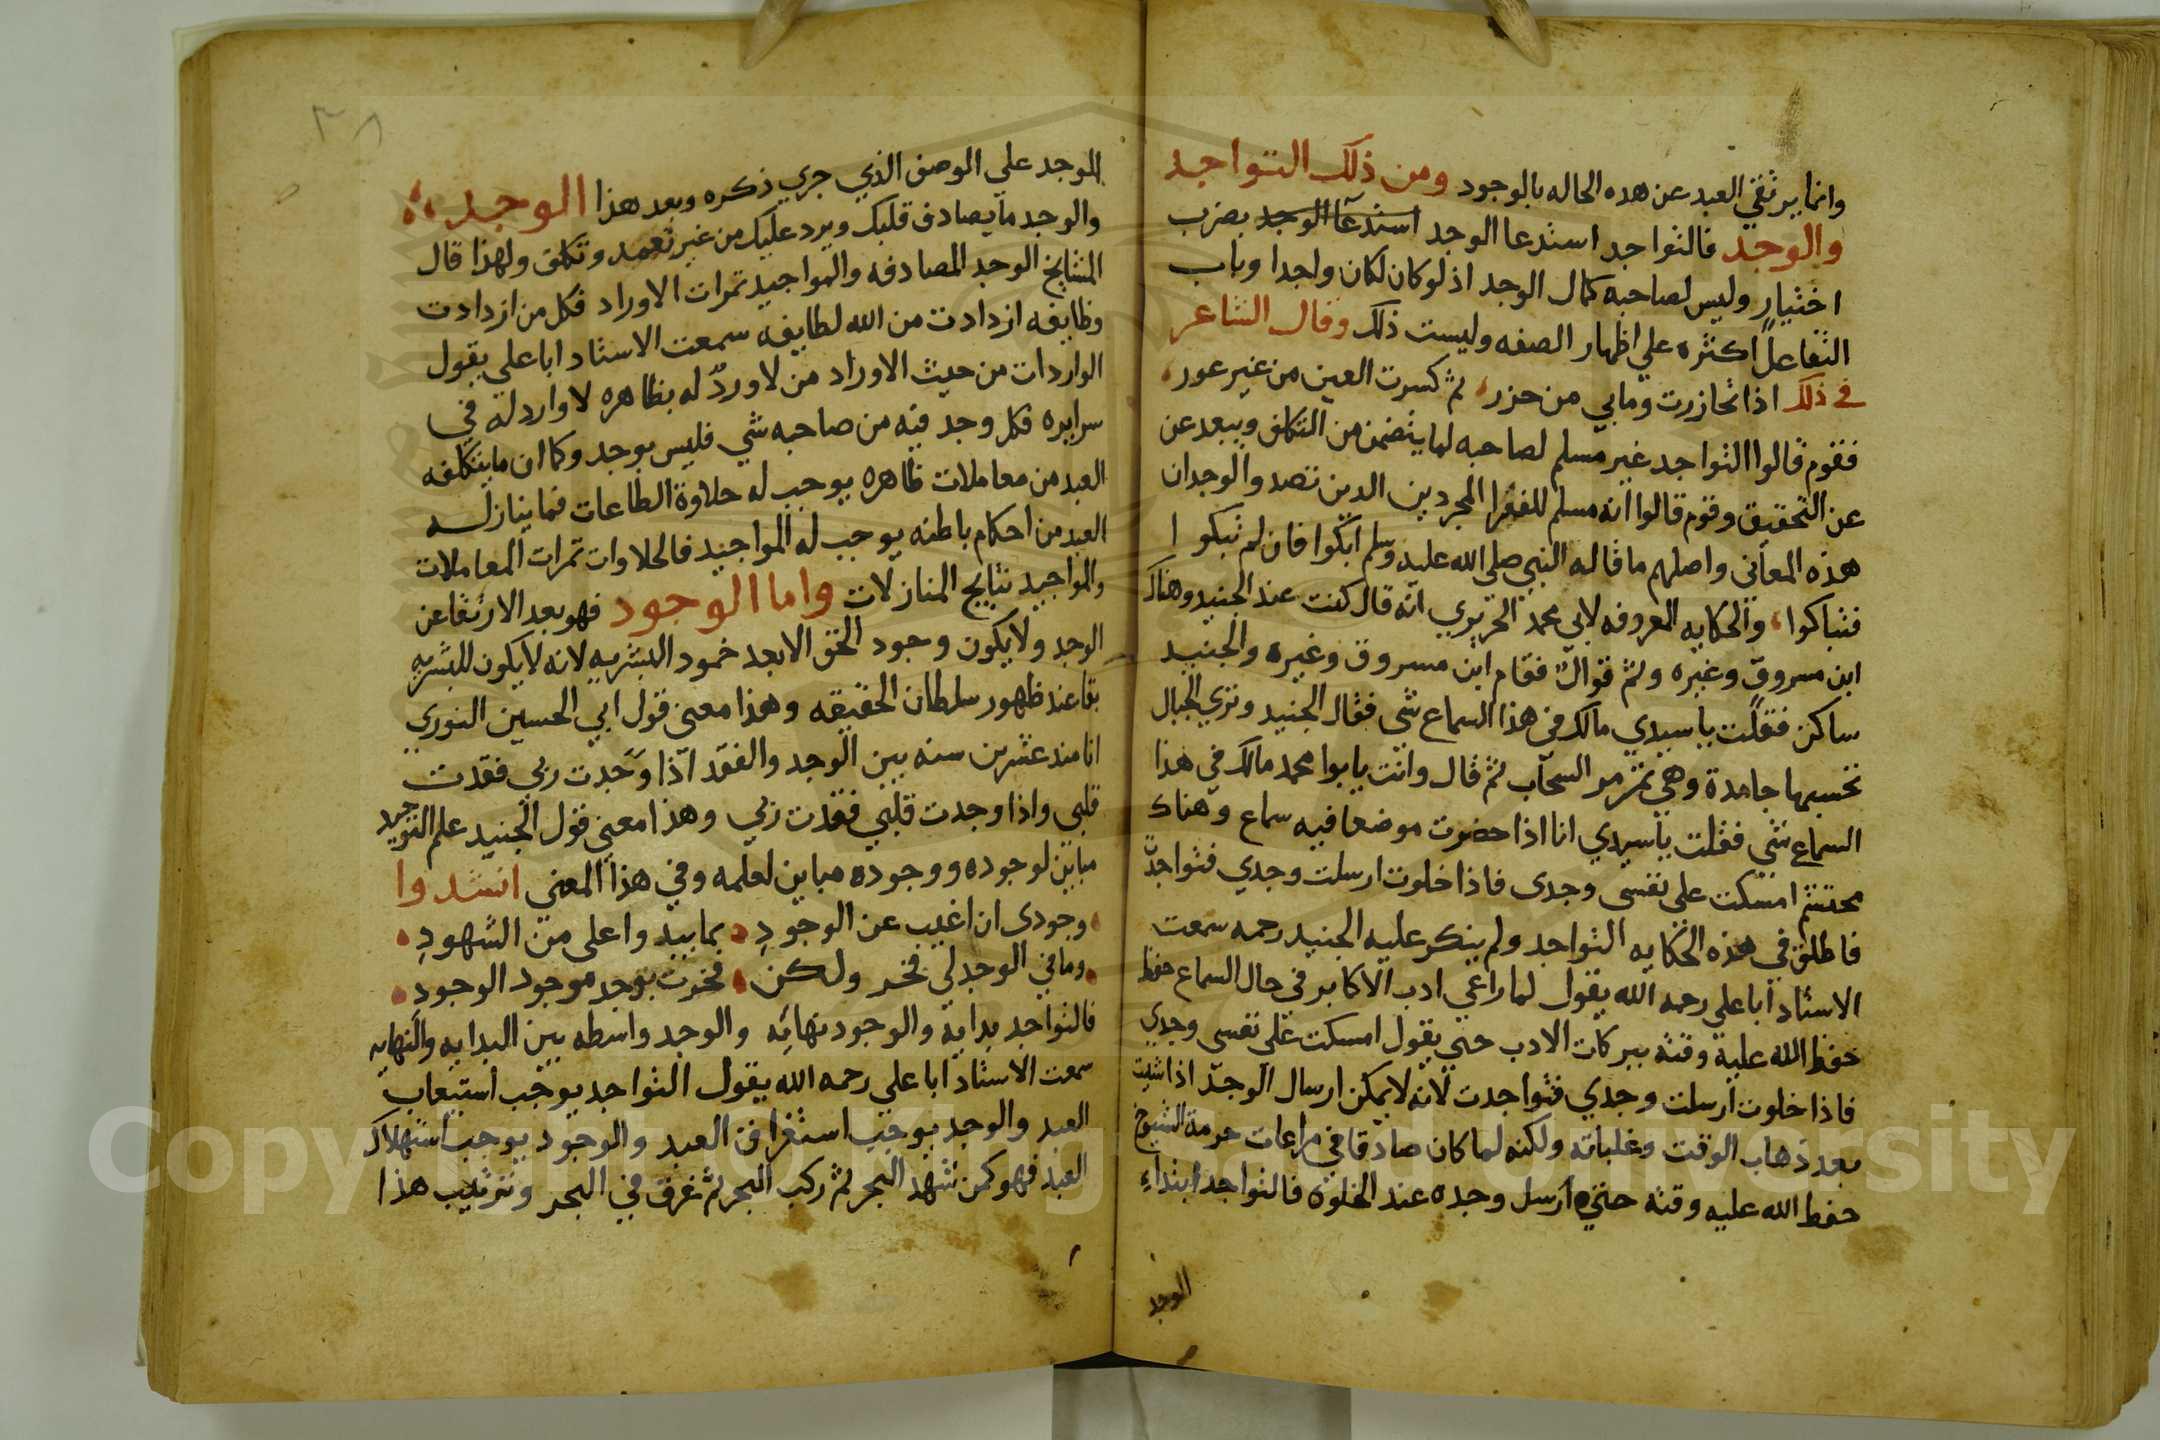 وانما يرتقي العبد عن هذه الحاله بالوجود ومن ذلك التواجد
والوجد فالتواجد استدعا الوجد استدعآ الوجد بضرب
اختيار وليس لصاحبه كمال الوجد اذ لو كان لكان واجدا وباب
التفاعل اكثره علي اظهار الصفه وليست ذلك وقال الشاعر
في ذلك اذا تخازرت ومابي من حزر، ثم كسرت العين من غير عور،
فقوم قالوا التواجد غير مسلم لصاحبه لما يتضمن من التكلف ويبعد عن
عن التحقيق وقوم قالوا انه مسلم للفقرا المجردين الدين ترصدوا لوجدان
هذه المعاني واصلهم ما قاله النبي صلي الله عليه وسلم ابكوا فان لم تبكوا ا
فتباكوا، والحكايه المعروفه لابي محمد الحريري انه قال كنت عند الجنيد وهناك
ابن مسروق وغيره وثم قوال فقام ابن مسروق وغيره والجنيد
ساكن فقلت يا سيدي مالك في هذا السماع شى فقال الجنيد وتري الجبال
تحسبها جامدة وهي تمر مر السحاب ثم قال وانت يا بوا محمد مالك في هذا
السماع شي فقلت يا سيدي انا اذا حضرت موضعا فيه سماع وهناك
محتشم امسكت على نفسى وجدى فاذا خلوت ارسلت وجدي فتواجدّ
فاطلق في هذه الحكايه التواجد ولم ينكر عليه الجنيد رحمه سمعت
الاستاد ابا علي رحمه الله يقول لما راعي ادب الاكابر في حال السماع حفظ
حفظ الله عليه وقته ببركات الادب حتي يقول امسكت على نفسى وجدي
فاذا خلوت ارسلت وجدي فتواجدت لانه لا يمكن ارسال الوجد اذا شيت
بعد ذهاب الوقت وغلباته ولكنه لما كان صادقا في مراعات حرمة الشيوخ
حفظ الله عليه وقته حتي ارسل وجده عند الخلوة فالتواجد ابتداء
الوجد
٣٨
الوجد علي الوصف الذي جري ذكره وبعد هذا الوجد
والوجد ما يصادف قلبك ويرد عليك من غير تعمد وتكلف ولهذا قال
المشايخ الوجد المصادفه والمواجيد ثمرات الاوراد فكل من ازدادت
وظايفه ازدادت من الله لطايفه سمعت الاستاد ابا علي يقول
الواردات من حيث الاوراد من لا وردّ له بظاهره لا وارد له في
سرايره فكل وجد فيه من صاحبه شي فليس بوجد وكما ان ما يتكلفه
العبد من معاملات ظاهره يوجب له حلاوة الطاعات فما ينازله
العبد من احكام باطنه يوجب له المواجيد فالحلاوات ثمرات المعاملات
والمواجيد نتايج المنازلات واما الوجود فهو بعد الارتقا عن
الوجد ولا يكون وجود الحق الا بعد خمود البشريه لانه لا يكون للبشريه
بقا عند ظهور سلطان الحقيقه وهذا معنى قول ابي الحسين النوري
انا مند عشرين سنه بين الوجد والفقد اذا وجدت ربي فقدت
قلبي واذا وجدت قلبي فقدت ربي وهذا معنى قول الجنيد علم التوحيد
مباين لوجوده ووجوده مباين لعلمه وفي هذا المعني انشدوا
وجودى ان اغيب عن الوجودِ، بما يبدوا على من الشهودِ
وما في الوجد لي فخر ولكن، فخرت بوجد موجود الوجودِ
فالتواجد بداية والوجود نهايه والوجد واسطه بين البدايه والنهايه
سمعت الاستاد ابا علي رحمه الله يقول التواجد يوجب استيعاب
العبد والوجد يوجب استغراق العبد والوجود يوجب استهلاك
العبد فهو كمن شهد البحر ثم ركب البحر ثم غرق في البحر وترتيب هذا
Copyright © King Saud University